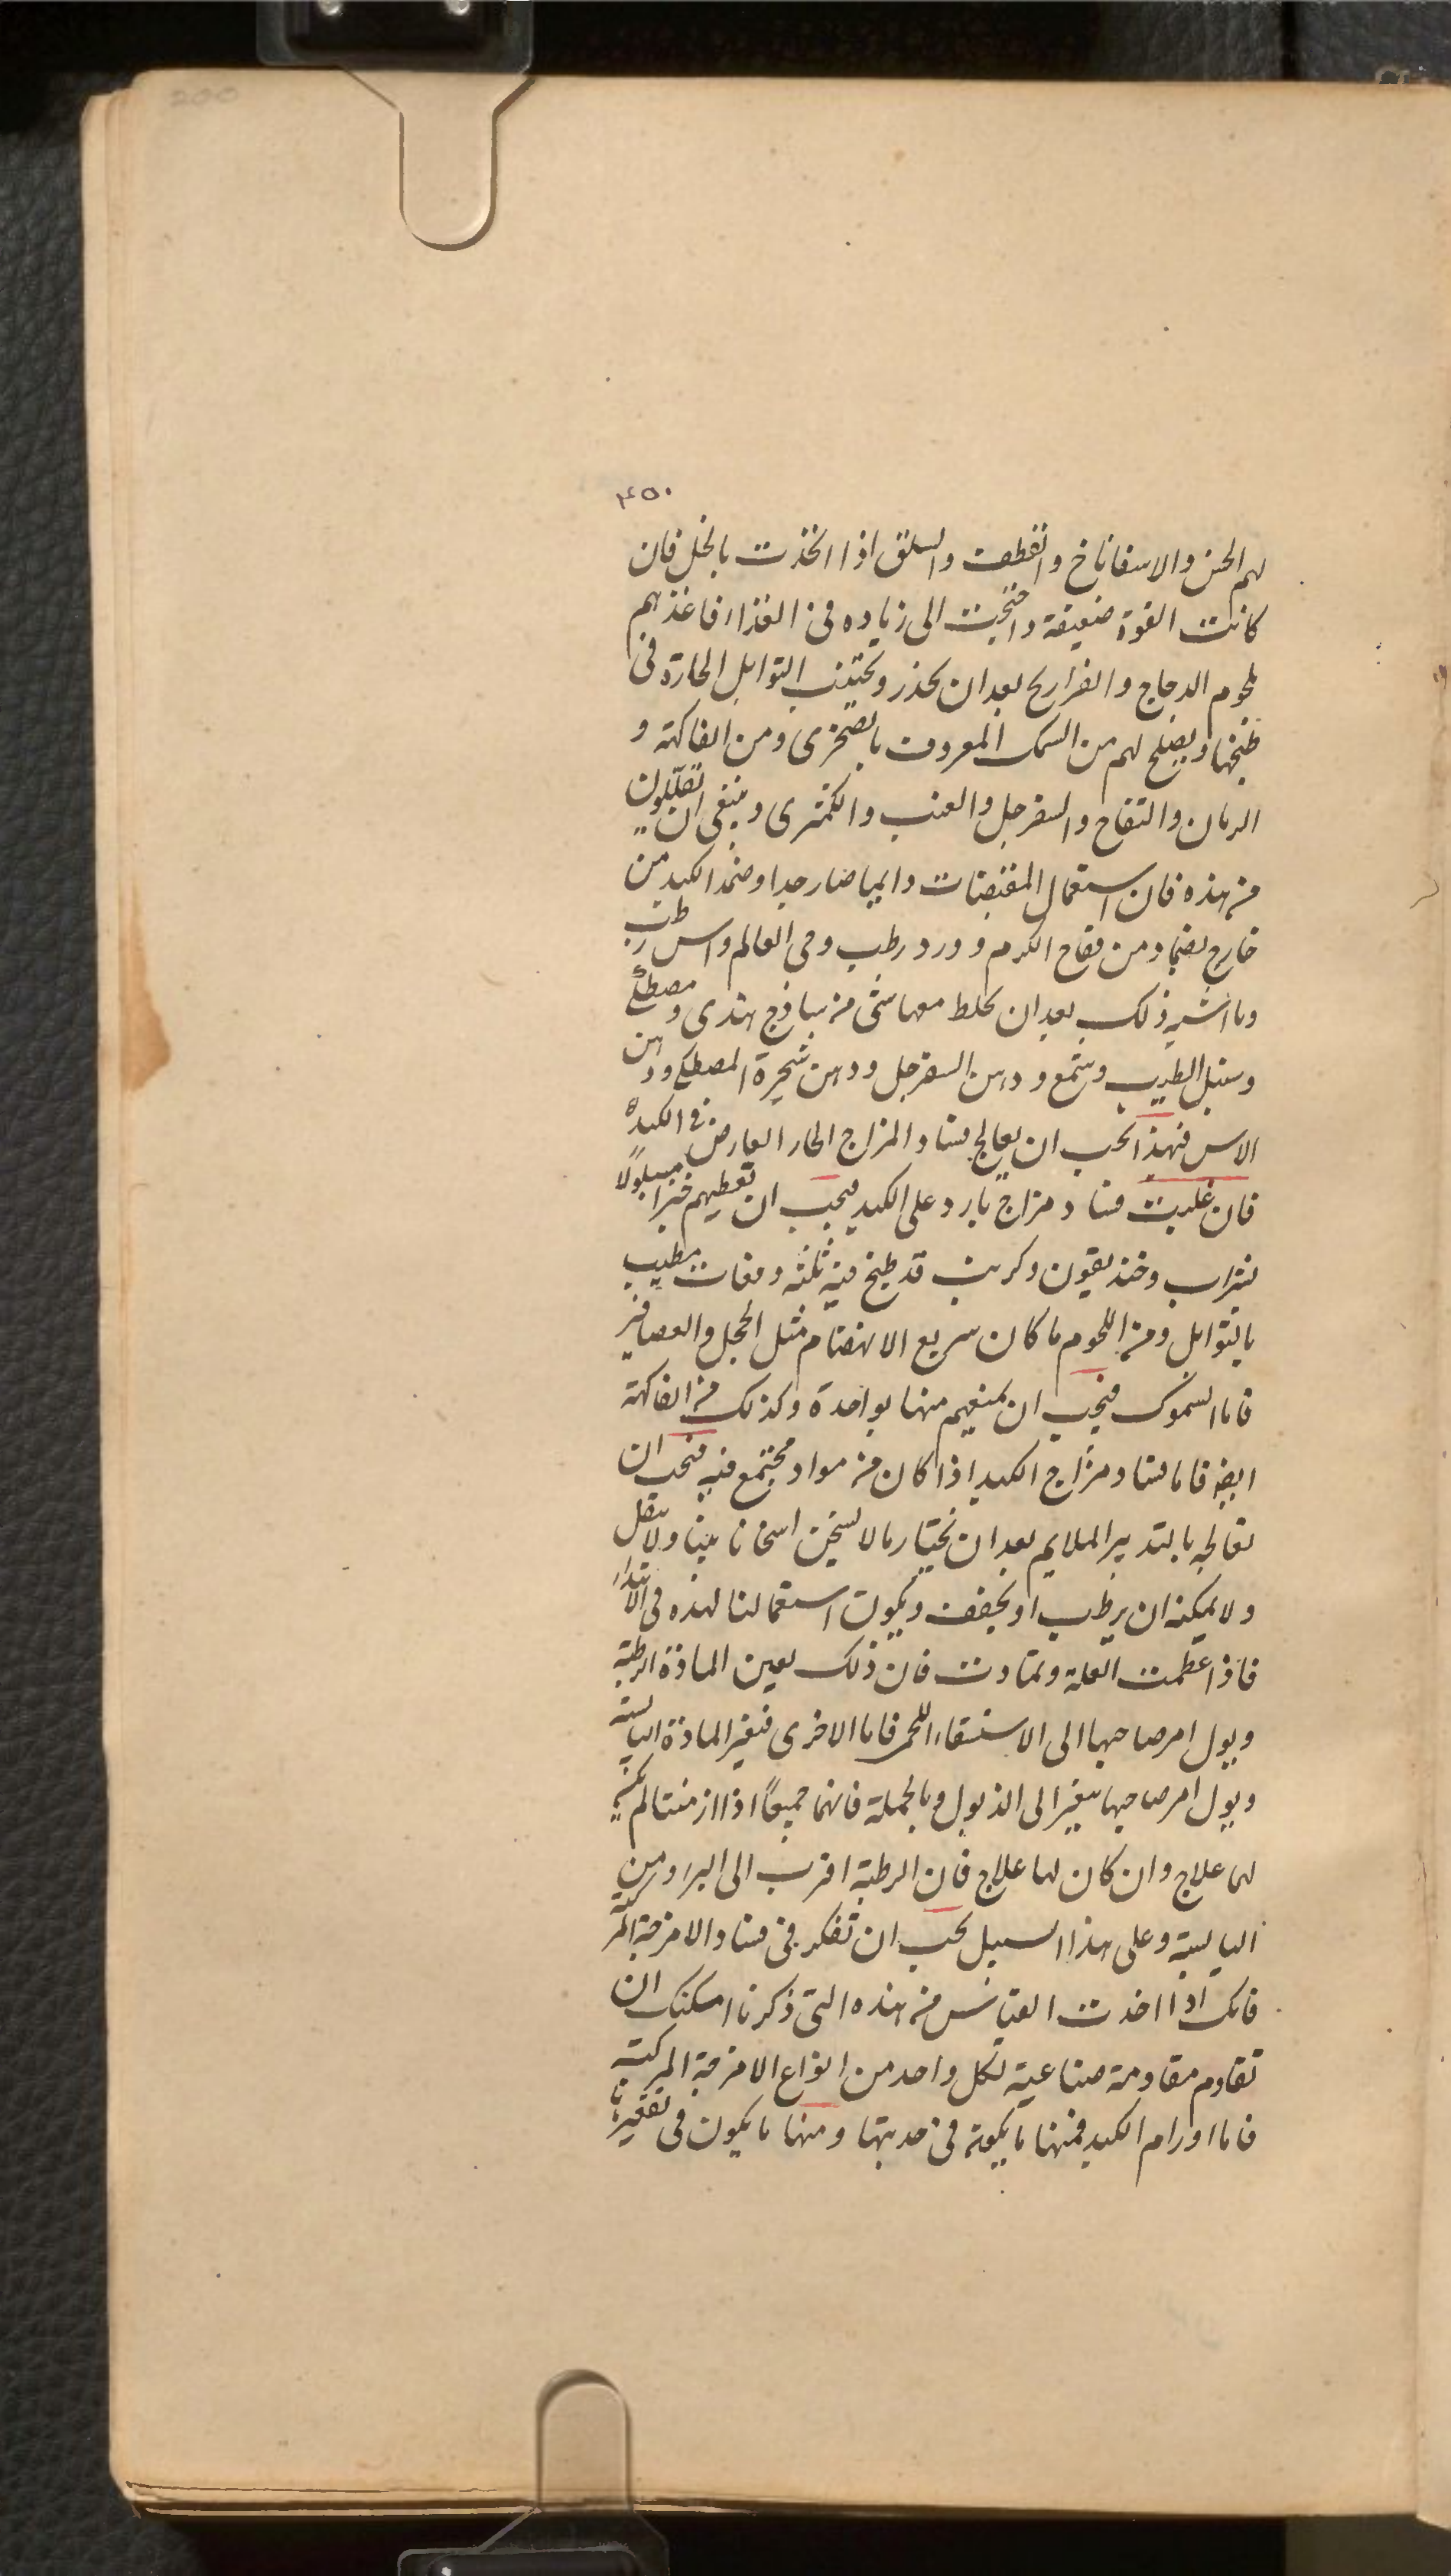 200
٤٥٠
لهم الخس والاسفاناخ والقطف والسلق اذا اتخذت بالخل فان
كانت القوة ضعيفة واحتجت الى زياده فى الغذاء فاغذهم
لحوم الدجاج والفراريح بعد ان تحذر وتجتنب التوابل الحارة فى
طبخها ويصلح لهم من السمك المعروف بالصخرى ومن الفاكهة و
الرمان والتفاح والسفرجل والعنب والكمثرى وينبغى ان تقللون
من هذه فان استعمال المقبضات دايميا ضار جدا وضمد الكبد من
خارج بضماد من فقاح الكرم وورد رطب وحى العالم واس رطب
وما اشبه ذلك بعد ان تخلط معها شئ من ساذج هندى ومصطكى
وسنبل الطيب وشمع ودهن السفرجل ودهن شجرة المصطكى ودهن
الاس فبهذا يجب ان يعالج فساد المزاج الحار العارض فى الكبد
فان غلبت فساد مزاج بارد على الكبد فيجب ان تعطيهم خبزا مبلولًا
بشراب وخنديقون وكرنب قد طبخ فيه ثلثه ومغات مطيب
بالتوابل ومن اللحوم ما كان سريع الانهضام مثل الحجل والعصافير
فاما السموك فيجب ان تمنعهم منها بواحدة وكذلك من الفاكهة
ايضا فاما فساد مزاج الكبد اذا كان من مواد تجتمع فيه فيجب ان
تعالجه بالتدبير الملايم بعد ان تختار ما لا يسخن اسخانا بينا ولا يثقل
ولا يمكنه ان يرطب او يجفف ويكون استعمالنا لهذه فى الابتداء
فاذا عظمت العلة وتمادت فان ذلك يعين المادة الرطبة
ويول امر صاحبها الى الاستسقاء اللحمى فاما الاخرى فتغير المادة اليابسة
ويول امر صاحبها بتغير الى الذبول وبالجملة فانهما جميعًا اذا ازمنتا لم يكن
لهما علاج وان كان لهما علاج فان الرطبة اقرب الى البرء ومن
اليابسة وعلى هذا السبيل يجب ان تفكر فى فساد الامزجة المركبة
فانك اذا اخذت القياس من هذه التى ذكرنا امكنك ان
تقاوم مقاومة صناعية لكل واحد من انواع الامزجة المركبة
فاما اورام الكبد فمنها ما يكون فى حدبتها ومنها ما يكون فى تقعيرها